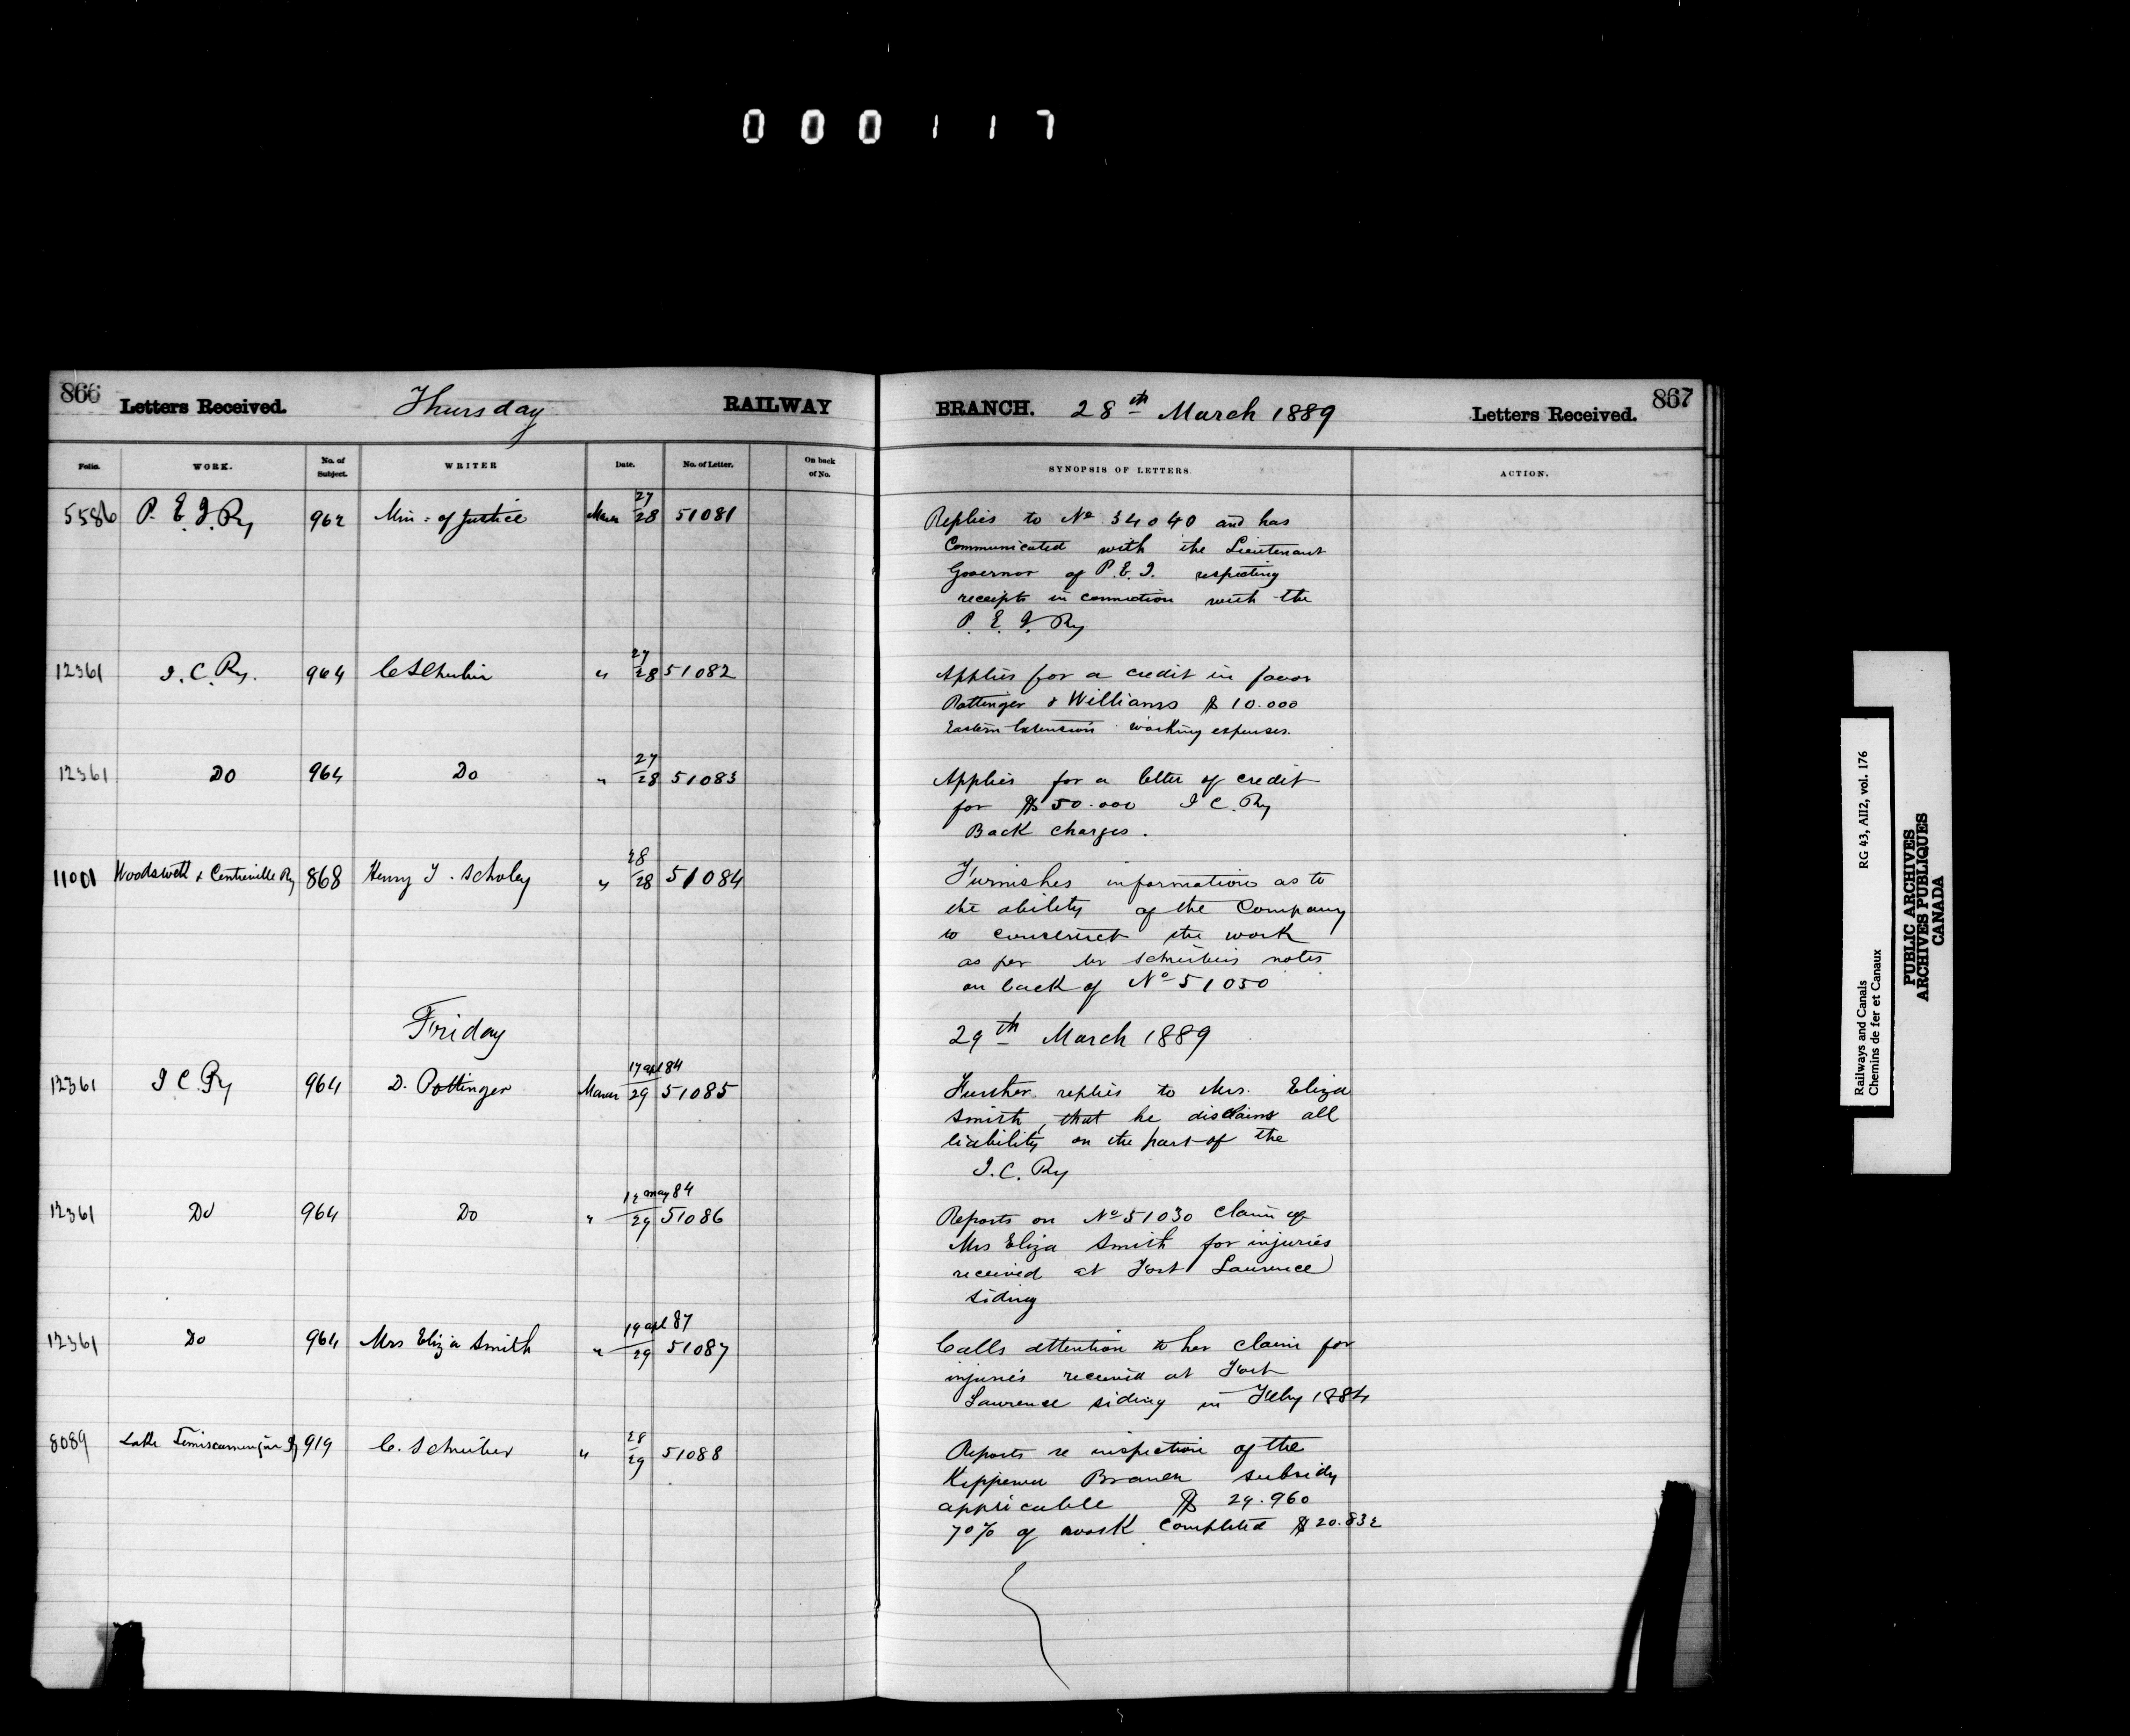 000117
866 Letters Received. Thursday RAILWAY BRANCH. 28th March 1889 Letters Received. 867
Folio. WORK. No. of Subject. WRITER Date. No. of Letter. On back of No. SYNOPSIS OF LETTERS. ACTION.
5586 P. E. I. Ry 962 Min: of Justice March 27/28 51081 Replies to No 34040 and has
Communicated with the Lieutenant
Governor of P. E. I. respecting
receipts in connection with the
P. E. I. Ry
12361 I. C. Ry. 964 C Schreiber " 27/28 51082 Applies for a credit in favor
Pottinger & Williams $ 10.000
Eastern Extension working expenses.
12361 Do 964 Do " 27/28 51083 Applies for a letter of credit
for $ 50.000 I C. Ry
Back charges.
11001 Woodstock & Centreville Ry 868 Henry T. Scholey " 28/28 51084 Furnishes information as to
the ability of the Company
to construct the work
as per Mr Schreibers notes
on back of No 51050
Friday 29th March 1889
12361 I C Ry 964 D. Pottinger March 17 apl 84/29 51085 Further replies to Mrs. Eliza
Smith, that he disclaims all
liability on the part of the
I. C. Ry
12361 Do 964 Do " 12 may 84/29 51086 Reports on No 51030 claim of
Mrs Eliza Smith for injuries
received at Fort Lawrence
siding
12361 Do 964 Mrs Eliza Smith " 19 apl 87/29 51087 Calls attention to her claim for
injuries received at Fort
Lawrence siding in Feby 1884
8089 Lake Temiscamingue Ry 919 C. Schreiber " 28/29 51088 Reports re inspection of the
Kippewa Branch subsidy
applicable $ 29.960
70% of work completed $ 20.832
Railways and Canals RG 43, AII2, vol. 176
Chemins de fer et Canaux
PUBLIC ARCHIVES
ARCHIVES PUBLIQUES
CANADA